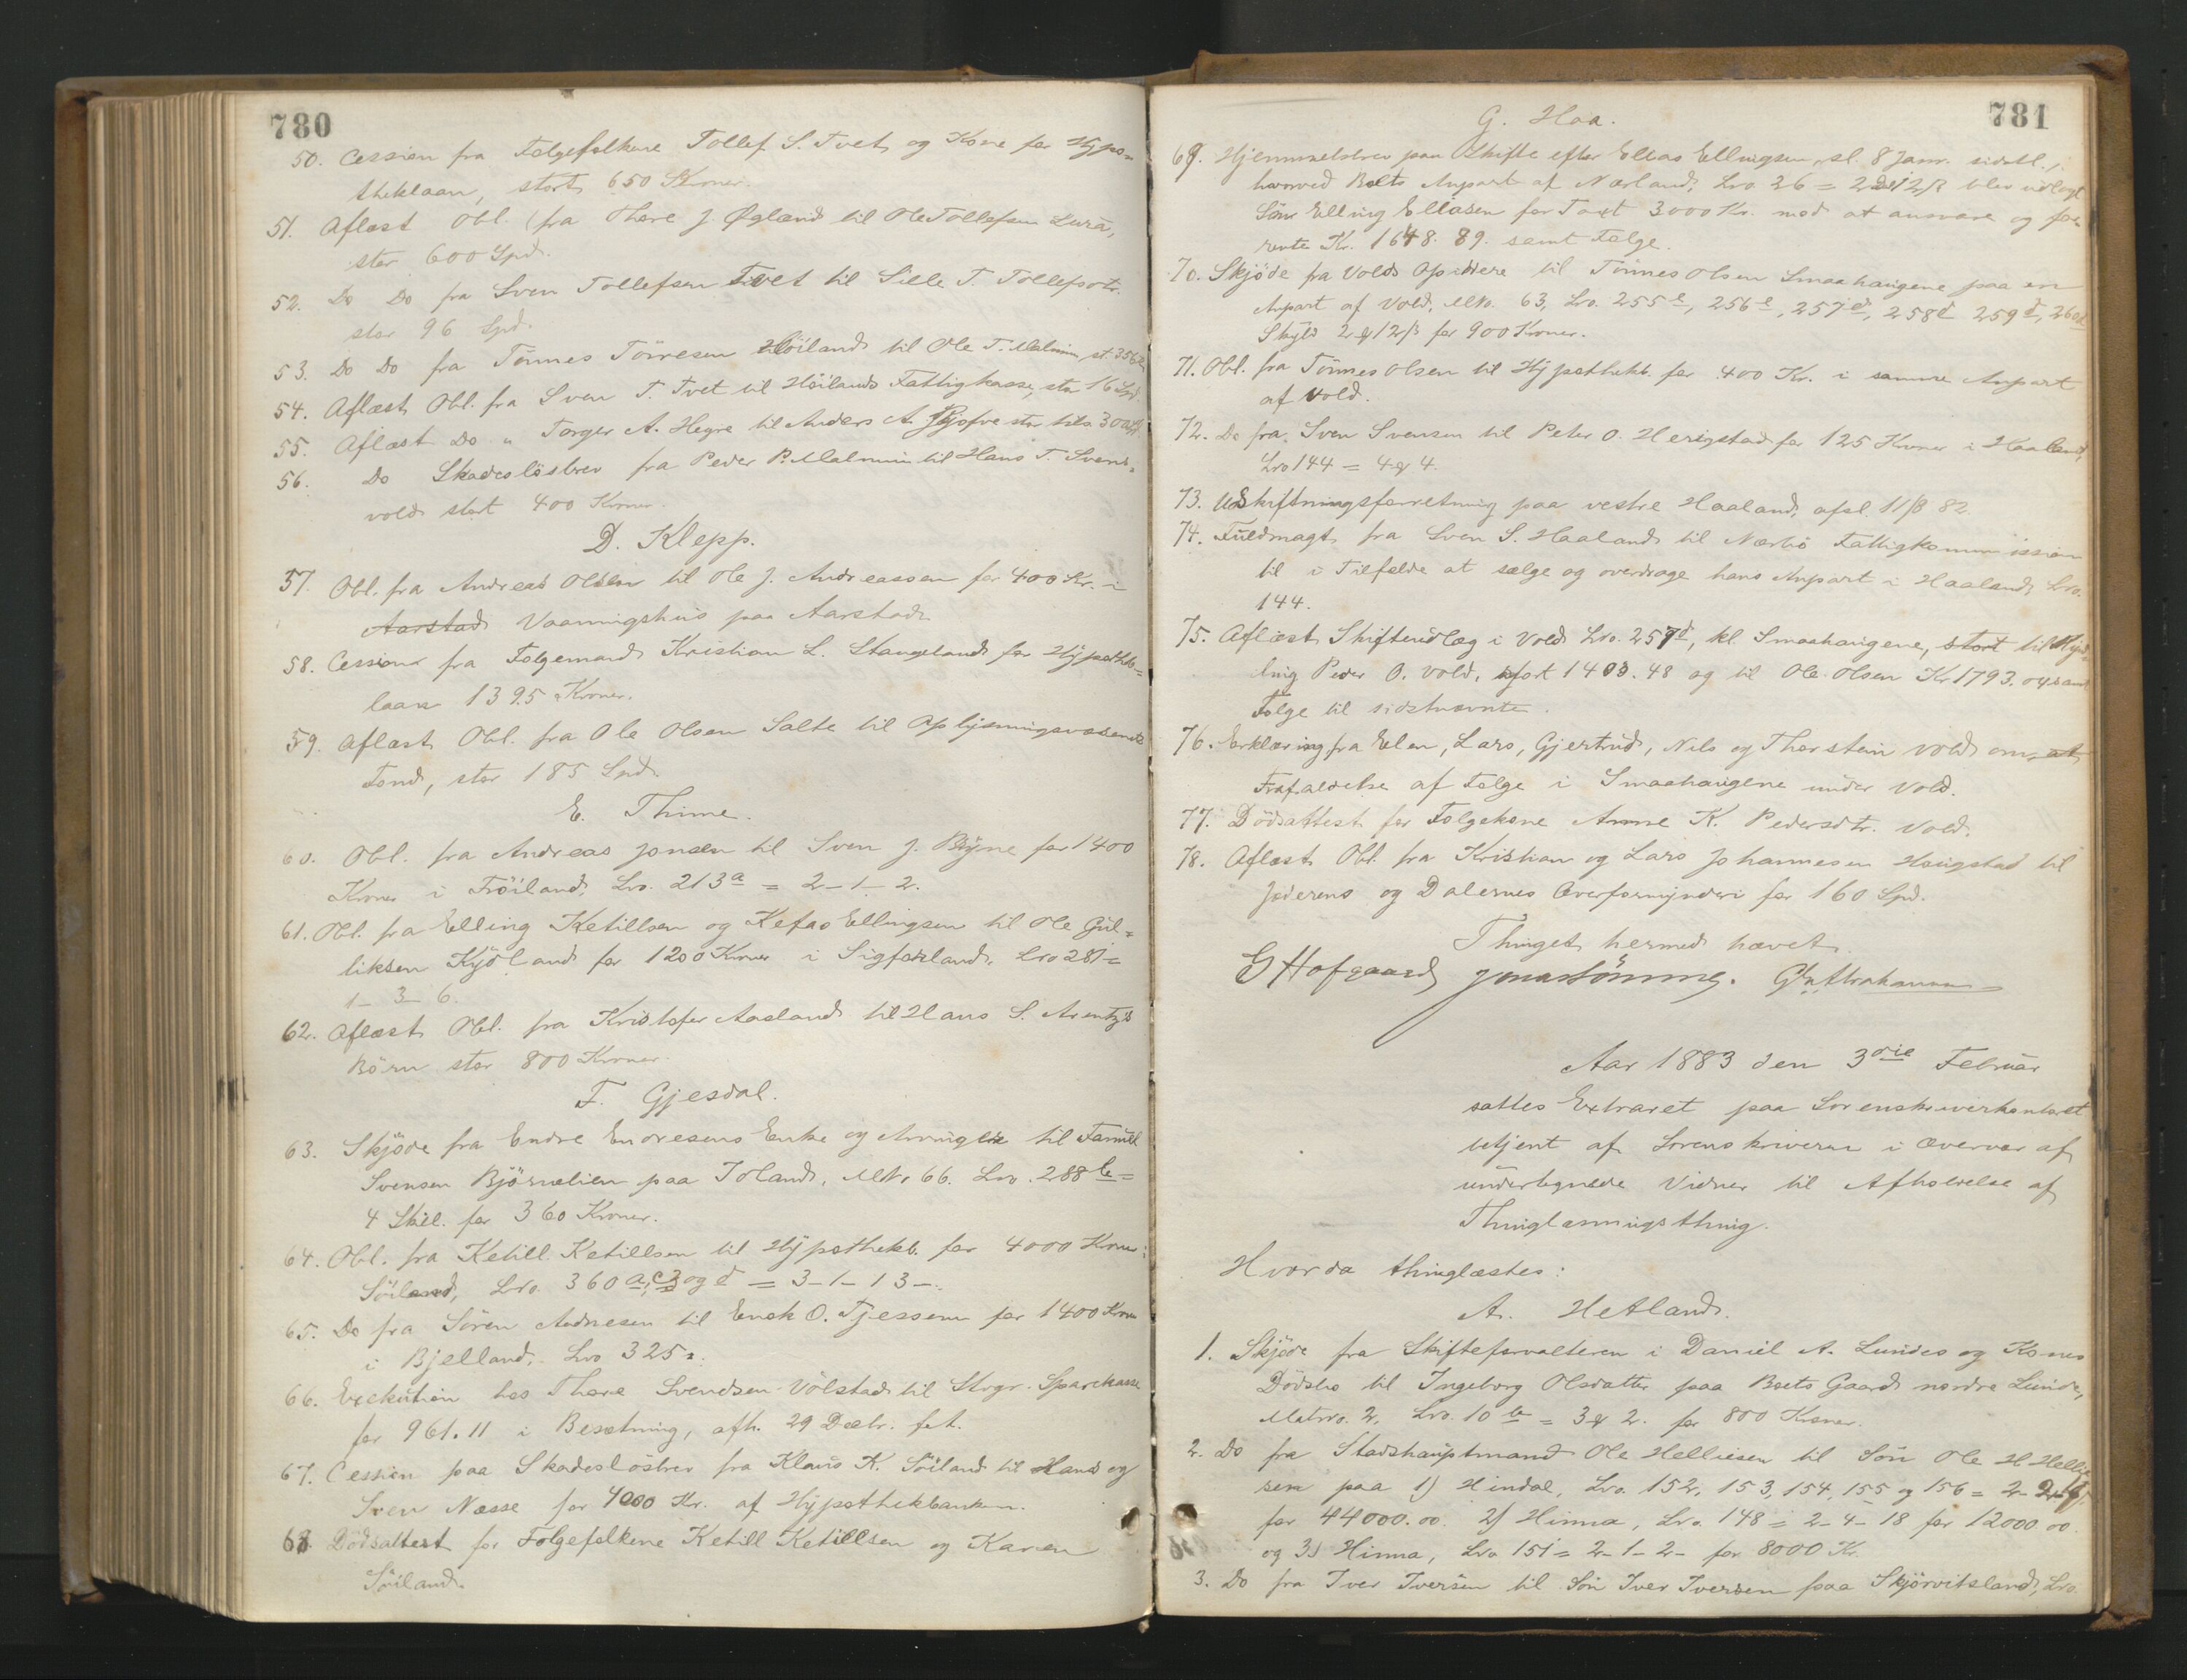 780
50. Cession fra Følgefolkene Tollef S. Tvet og Kone for Hypo-
theklaan, stort 650 Kroner.
51. Aflæst Obl. fra Thore J. Øgland til Ole Tollefsen Lura,
stor 600 Spd.
52. Do Do fra Sven Tollefsen Tvet til Sille T. Tollefsdtr.
stor 96 Spd.
53. Do Do fra Tönnes Törresen Höiland til Ole T. Malmin, st.
54. Aflæst Obl. fra Sven T. Tvet til Höilands Fattigkasse, stor 16 Spd.
55. Aflæst Do " Torger A. Hegre til Anders A. stor
56. Do Skadeslösbrev fra Peder P. Malmin til Hans T. Svens-
vold stort 400 Kroner.
D. Klepp.
57. Obl. fra Andreas Olsen til Ole J. Andreassen for 400 Kr. i
Aarstad Vaaningshus paa Aarstad.
58. Cession fra Følgemand Kristian L. Stangeland for Hypothek-
laan 1395 Kroner.
59. Aflæst Obl. fra Ole Olsen Salte til Oplysningsvæsenets
Fond, stor 185 Spd.
E. Thime.
60. Obl. fra Andreas Jonsen til Sven J. Bryne for 1400
Kroner i Fröiland, Lno. 213a = 2-1-2.
61. Obl. fra Elling Ketillsen og Kefas Ellingsen til Ole Gul-
liksen Kjölland for 1200 Kroner i Sigfasland, Lno 281 =
1-3-6.
62. Aflæst Obl. fra Kristofer Aasland til Hans S. Arentz's
Börn stor 800 Kroner.
F. Gjesdal.
63. Skjöde fra Endre Endresens Enke og Arvinger til
Svensen Björnelien paa Oland, MNo 66. Lno. 288b =
4 Skil. for 360 Kroner.
64. Obl. fra Ketill Ketillsen til Hypothekb. for 4000 Kroner i
Söiland, Lno. 360 a, c og d = 3-1-13-.
65. Do fra Sören Andresen til Enok O. Tjessem for 1400 Kroner
i Bjelland, Lno 325.
66. Exekution hos Thore Svendsen Volstad til Strgr. Sparekasse
for 961.11 i Besætning, afh. 29 Decbr. f.A.
67. Cession paa Skadeslösbrev fra Klaus K. Söiland til Hans og
Sven Næsse for 4000 Kr. af Hypothekbanken.
68. Dödsattest for Følgefolkene Ketill Ketillsen og Karen
Söiland.
781
G. Haa.
69. Hjemmelsbrev paa Skifte efter Elias Ellingsen, sl. 8 Janr. sidstl.,
hvorved Boets Anpart af Nærland, Lno. 26 = 2 12 ß blev udlagt
Sön Elling Eliasen for Taxt 3000 Kr. mod at ansvare og for-
rente Kr. 1648.89. samt Følge.
70. Skjöde fra Volds Opsiddere til Tönnes Olsen Smaahaugene paa en
Anpart af Vold, MNo. 63, Lno. 255e, 256e, 257d, 258d 259d, 260d
Skyld 2 12 ß for 900 Kroner.
71. Obl. fra Tönnes Olsen til Hypothekb. for 400 Kr. i samme Anpart
af Vold.
72. Do fra Sven Svensen til Peter O. Herigstad for 125 Kroner i Haaland,
Lno 144 = 4 4.
73. Udskiftningsforretning paa vestre Haaland, afsl. 11/8 82.
74. Fuldmagt fra Sven S. Haaland til Nærbö Fattigkommission
til i Tilfælde at sælge og overdrage hans Anpart i Haaland, Lno.
144.
75. Aflæst Skifteudlæg i Vold Lno. 257d, kl. Smaahaugene, stort til Mynd-
ling Peder O. Vold, stort 1403.48 og til Ole Olsen Kr 1793.04 samt
Følge til sidstnævnte.
76. Erklæring fra Elen, Lars, Gjertrud, Nils og Thorstein Vold om at
Frafaldelse af Følge i Smaahaugene under Vold.
77. Dödsattest for Følgekone Anne K. Pedersdtr. Vold.
78. Aflæst Obl. fra Kristian og Lars Johannesen Haugstad til
Jæderens og Dalernes Overformynderi for 160 Spd.
Thinget hermed hævet.
G Hofgaard Jonas Sömme. Abrahamsen
Aar 1883 den 3die Februar
sattes Extraret paa Sorenskriverkontoret
betjent af Sorenskriveren i Overvær af
undertegnede Vidner til Afholdelse af
Thinglæsningsthing.
Hvorda thinglæstes:
A. Hetland.
1. Skjöde fra Skifteforvalteren i Daniel A. Lundes og Kones
Dödsbo til Ingeborg Olsdatter paa Boets Gaard nordre Lunde,
Matrno. 2, Lno. 10b = 3 2. for 800 Kroner.
2. Do fra Stadshauptmand Ole Helliesen til Sön Ole H Hellie-
sen paa 1) Hindal, Lno. 152, 153, 154, 155 og 156 =
for 44000.00. 2) Hinna, Lno. 148 = 2-4-18 for 12000.00.
og 3) Hinna, Lno 151 = 2-1-2- for 8000 Kr.
3. Do fra Iver Iversen til Sön Iver Iversen paa Skjörvitsland, Lno.